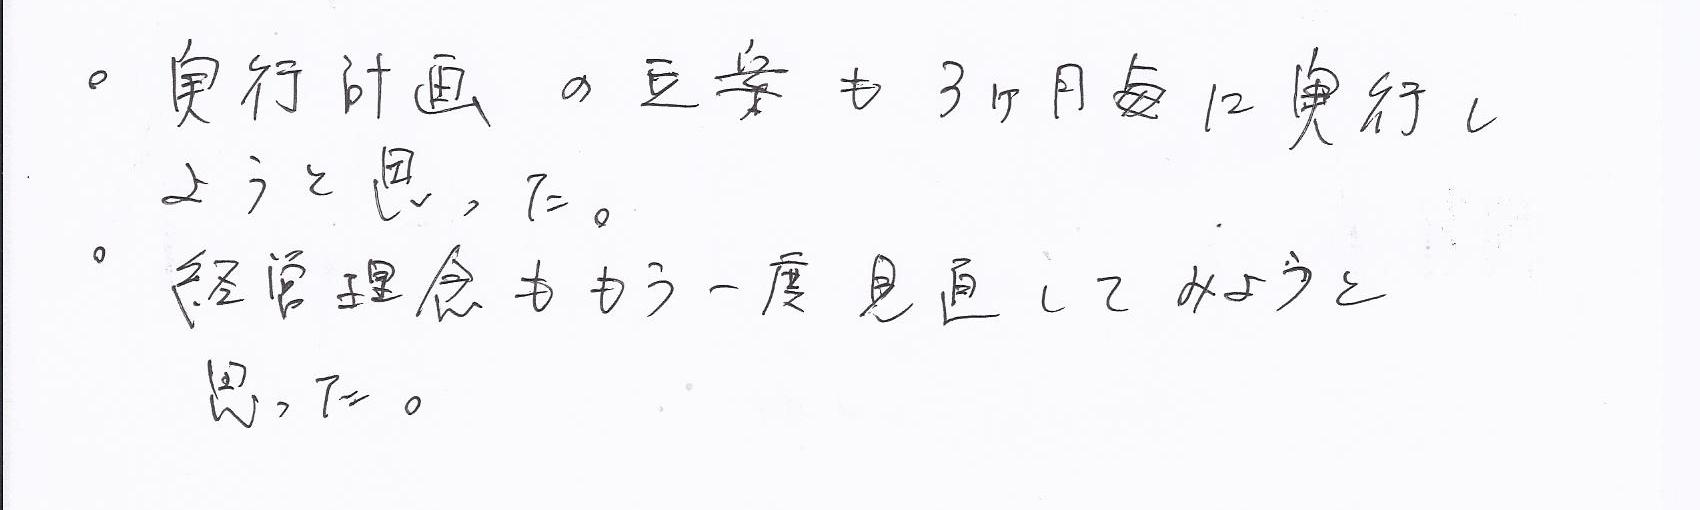 。実行計画の立案も3ヶ月毎に実行し
ようと思った。
。経営理念ももう一度見直してみようと
思った。